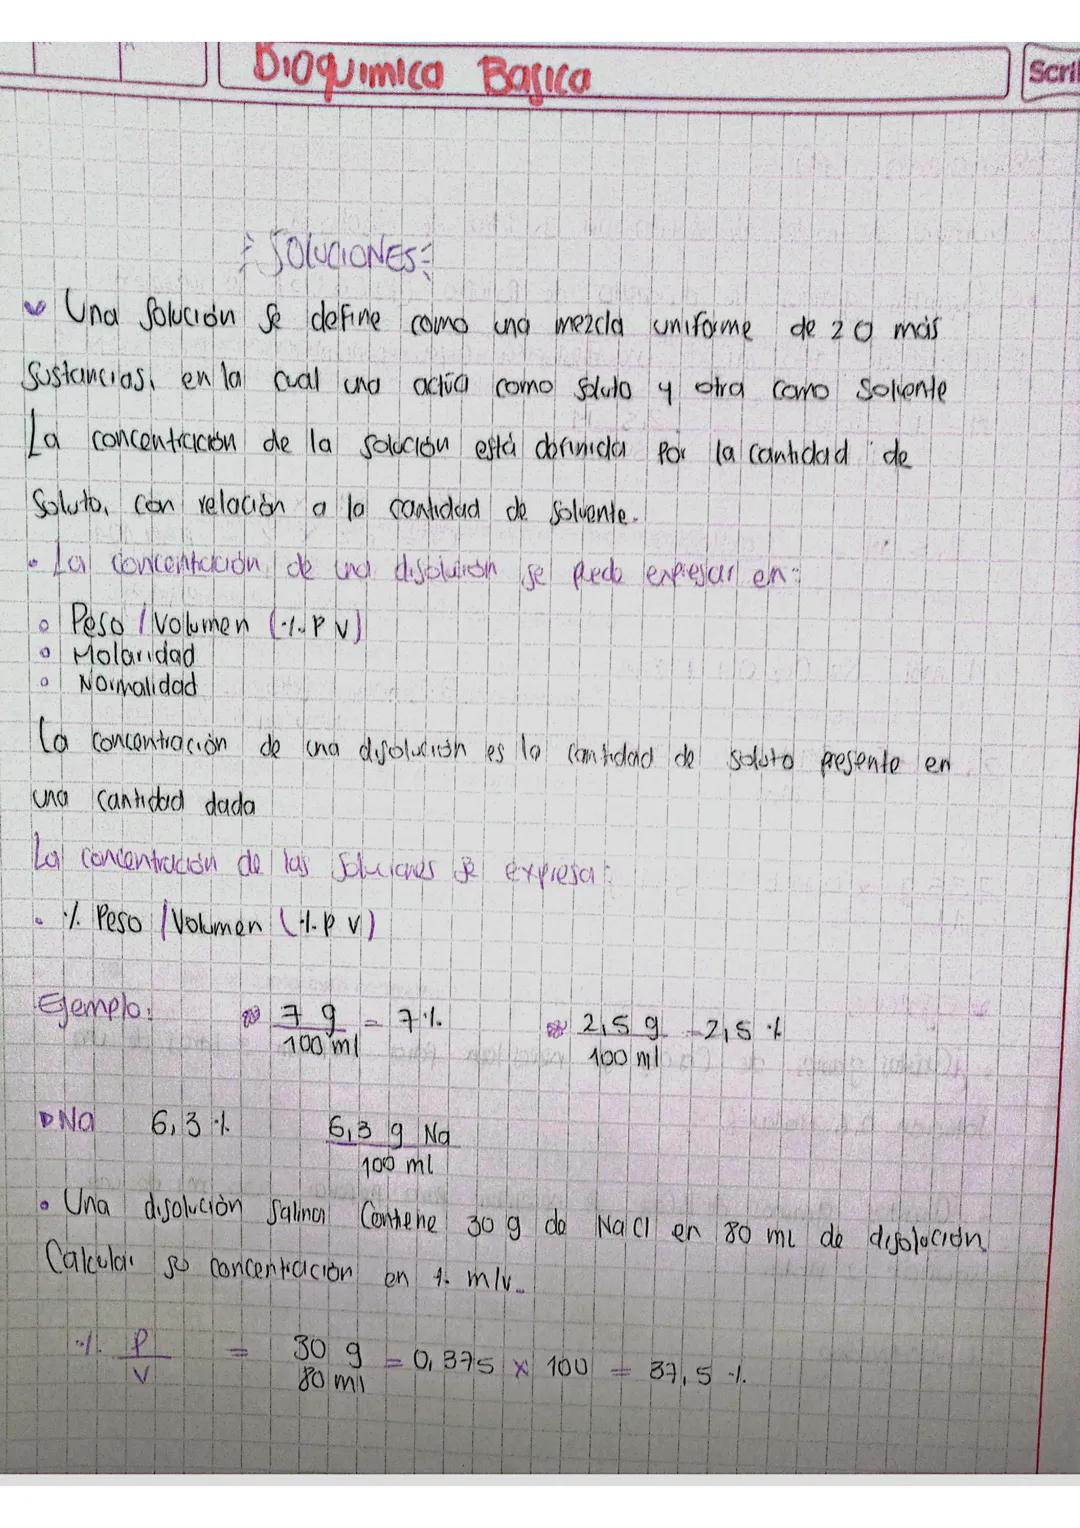 Bioquimica Basica
Scri
SOLUCIONES
Una Solución se define como una mezcla uniforme de 2 o más
Sustancias, en la cual una actúa como soluto y otra como Solvente
La concentración de la solución está definida Por la cantidad de
Soluto, con relación a la cantidad de solvente.
La concentración de una disolución se puede expresar en:
Peso / Volumen (% P V)
Molaridad
Normalidad
La concentración de una disolución es la cantidad de soluto presente en
una cantidad dada
La concentración de las Soluciones se expresa:
% Peso / Volumen (% P V)
Ejemplo: 7 g = 7% 2,5 g = 2,5 %
100 ml 100 ml
Na 6,3 % 6,3 g Na
100 ml
Una disolución Salina Contiene 30 g de NaCl en 80 ml de disolución
Calcular su concentración en % m/v.
% P = 30 g = 0,375 x 100 = 37,5 %.
V 80 ml